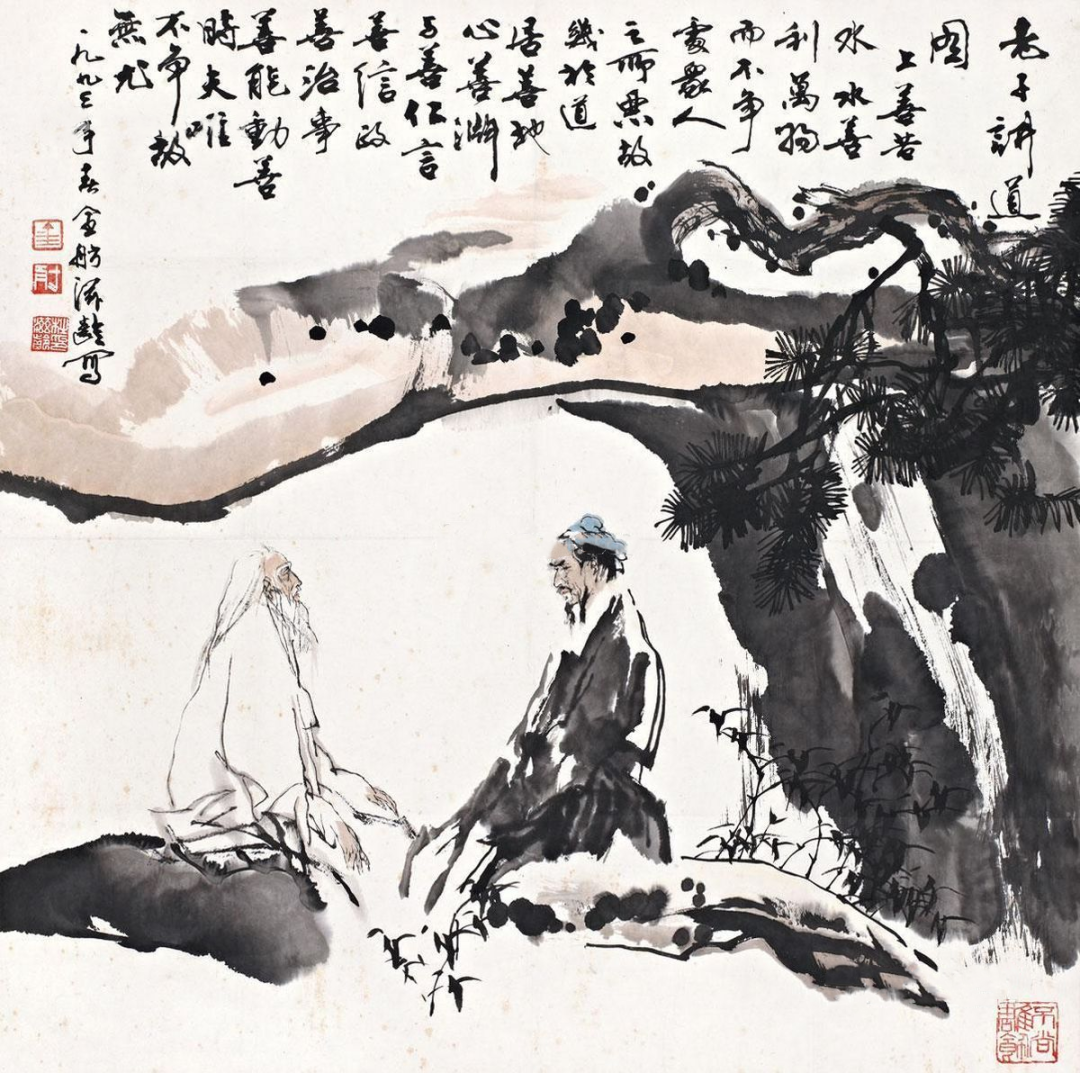 老子講道
图
上善若
水水善
利萬物
而不争
處眾人
之所惡故
幾於道
居善地
心善淵
与善仁言
善信政
善治事
善能動善
時夫唯
不争故
無尤
一九九三年春金舫滋齡写
杜印滋齡